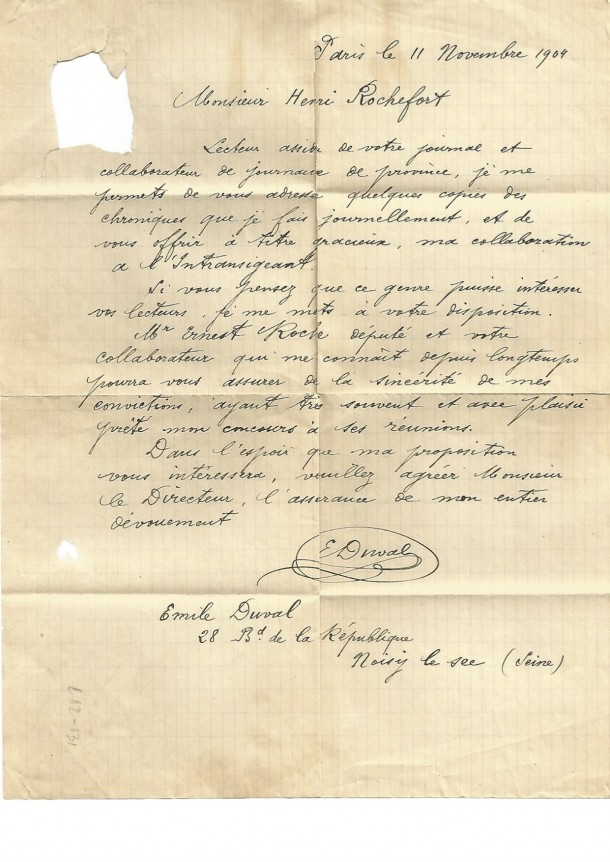 Paris le 11 Novembre 1904
Monsieur Henri Rochefort
Lecteur assidu de votre journal et
collaborateur de journaux de province, je me
permets de vous adresser quelques copies des
chroniques que je fais journellement, et de
vous offrir à titre gracieux, ma collaboration
a l'Intransigeant
Si vous pensez que ce genre puisse intéresser
vos lecteurs, je me mets à votre disposition.
Mr Ernest Roche député et votre
collaborateur qui me connaît depuis longtemps
pourra vous assurer de la sincérité de mes
convictions, ayant très souvent et avec plaisir
prêté mon concours à ses reunions.
Dans l'espoir que ma proposition
vous intéressera, veuillez agréer Monsieur
le Directeur, l'assurance de mon entier
dévouement
E Duval
Emile Duval
28 Bd. de la République
Noisy le sec (Seine)